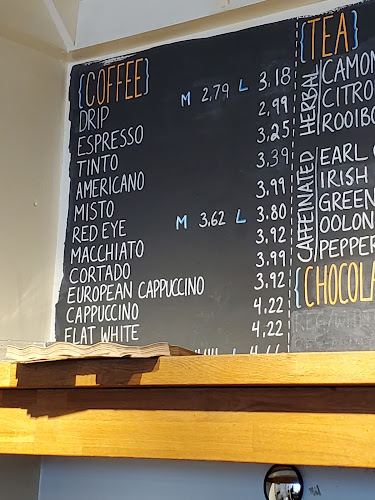 {COFFEE}
DRIP M 2,79 L 3,18
ESPRESSO 2,99
TINTO 3,25
AMERICANO 3,39
MISTO 3,99
RED EYE M 3,62 L 3,80
MACCHIATO 3,92
CORTADO 3,99
EUROPEAN CAPPUCCINO 3,92
CAPPUCCINO 4,22
FLAT WHITE 4,22
L
{TEA}
HERBAL
CAMOM
CITRO
ROOIBO
CAFFEINATED
EARL
IRISH
GREEN
OOLON
PEPPER
{CHOCOLA